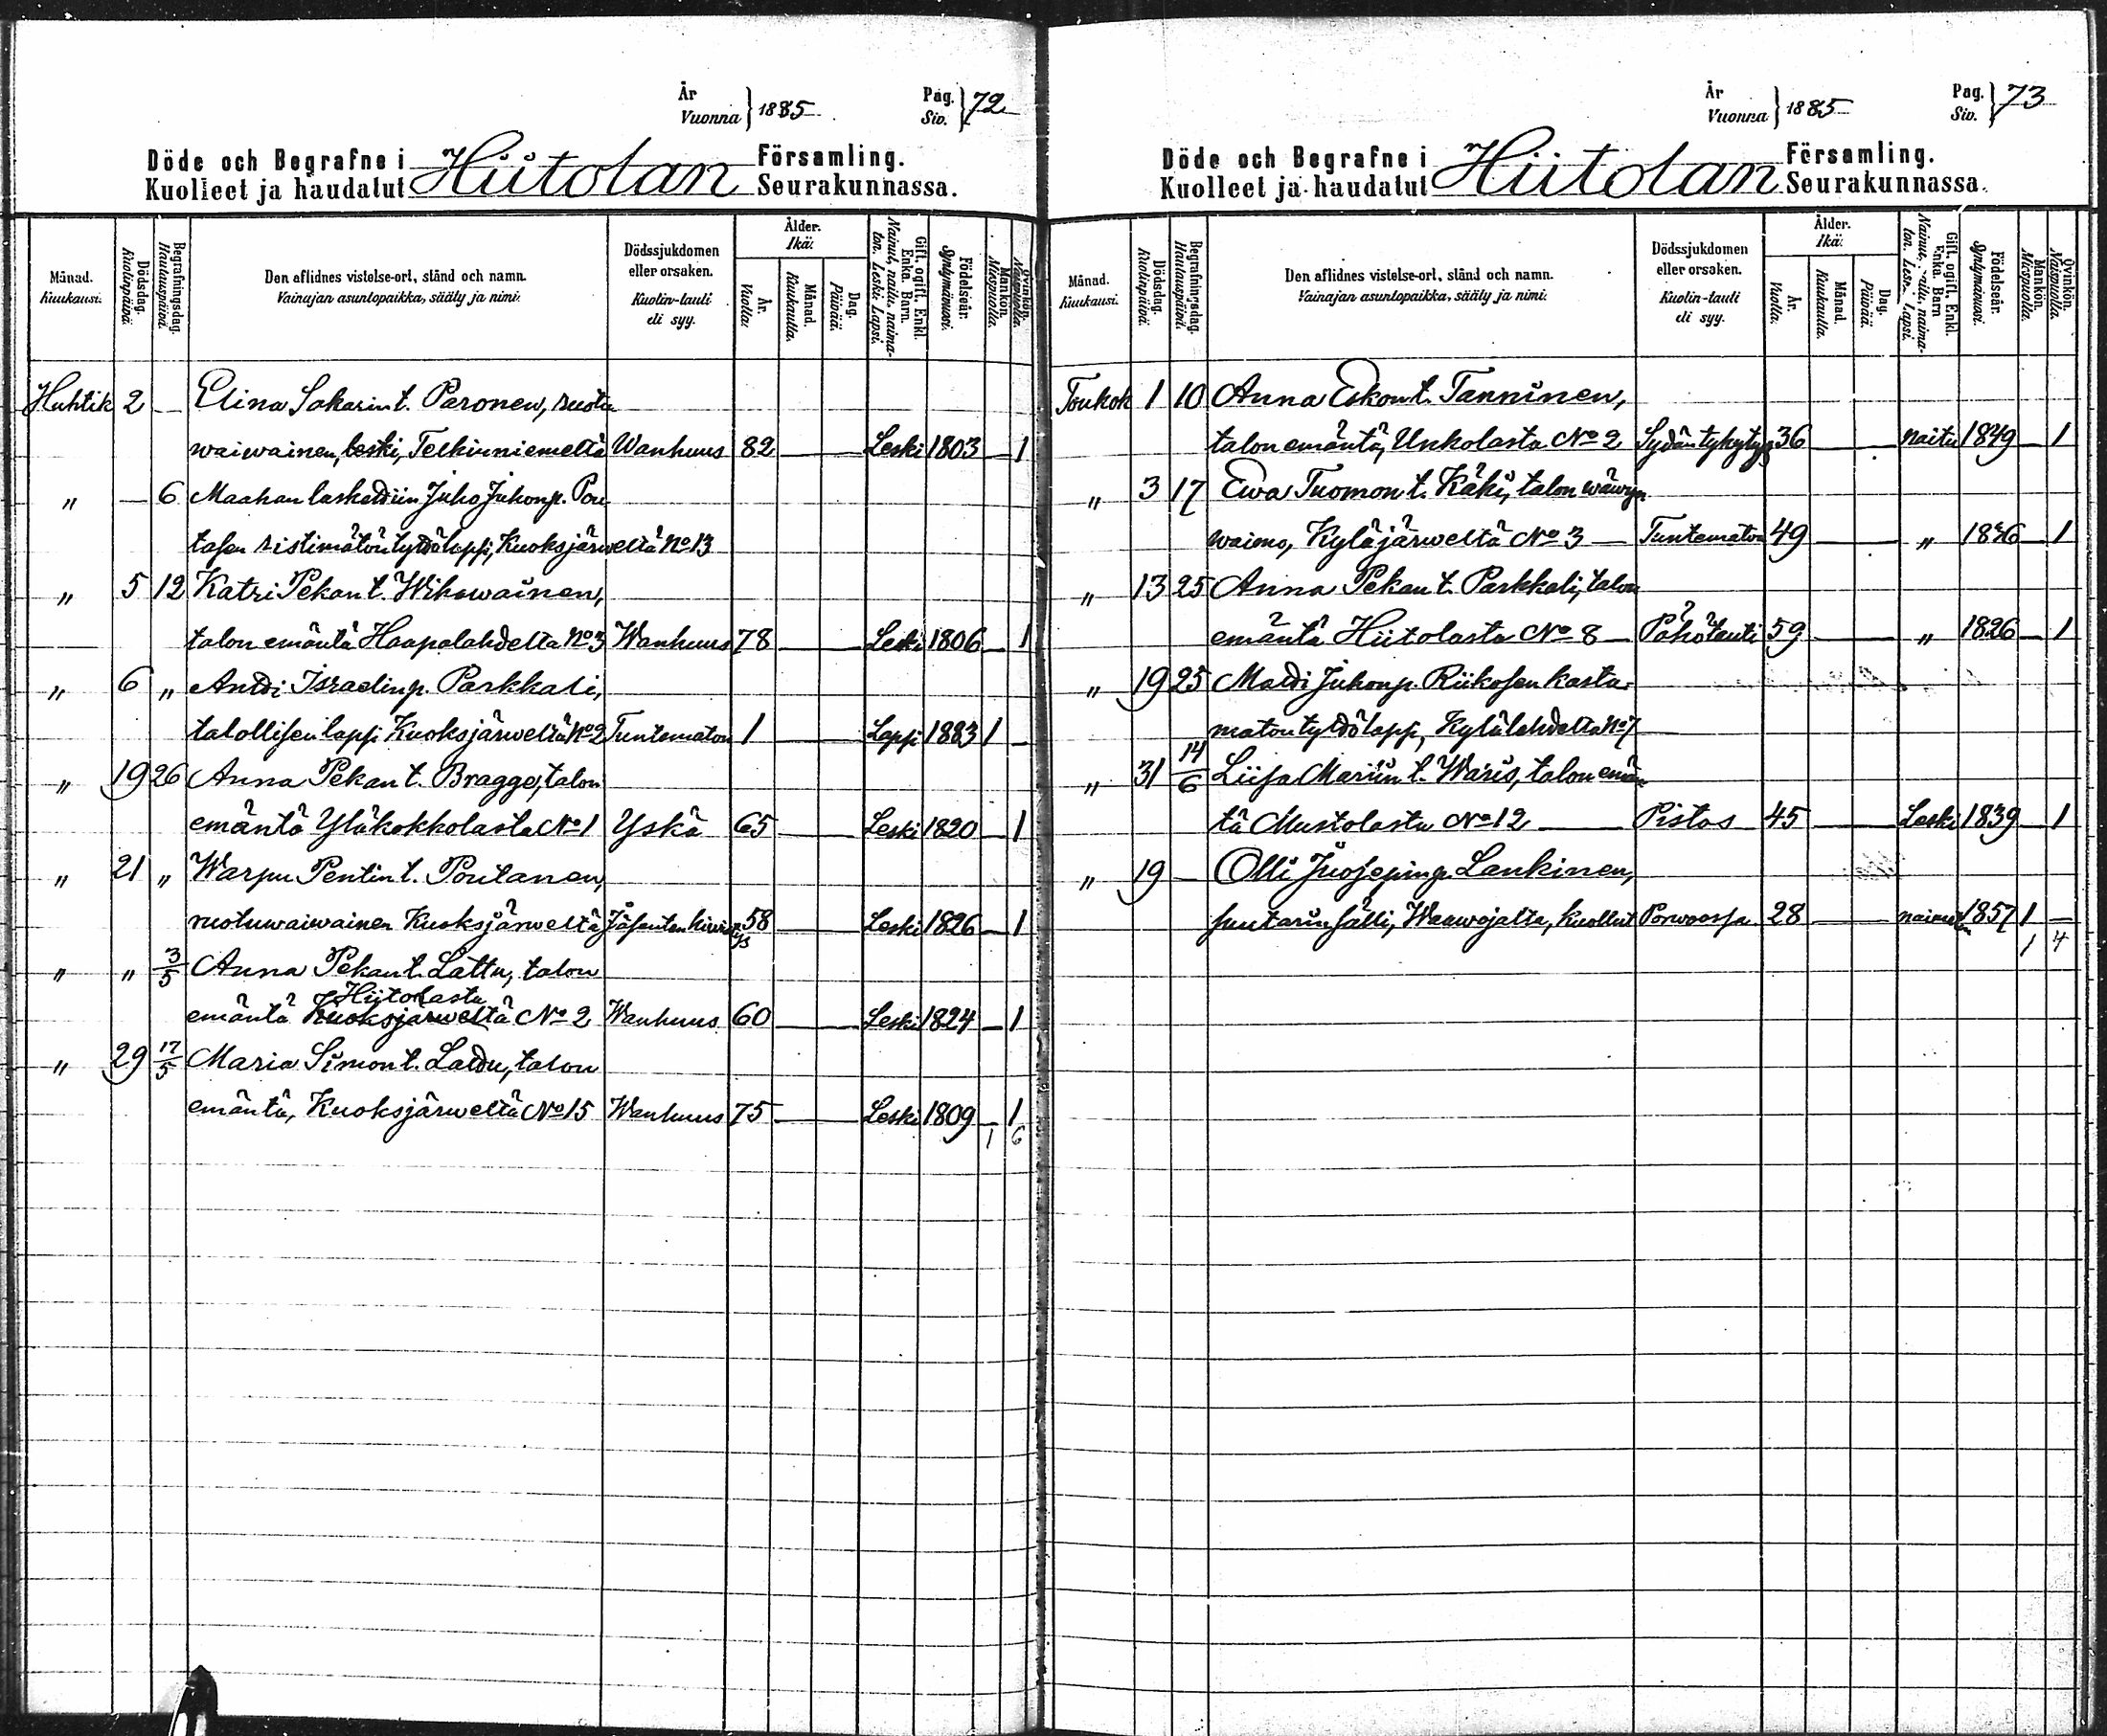 År
Vuonna } 1885
Pag.
Siv. } 72
Döde och Begrafne i Hiitolan Församling.
Kuolleet ja haudatut Seurakunnassa.
Månad. Kuukausi.
Dödsdag. Kuolinpäivä.
Begrafningsdag. Hautauspäivä.
Den aflidnes vistelse-ort, stånd och namn.
Vainajan asuntopaikka, sääty ja nimi.
Dödssjukdomen eller orsaken.
Kuolin-tauti eli syy.
Ålder. Ikä.
År. Vuotta.
Månad. Kuukautta.
Dag. Päivää.
Gift, ogift, Enkl. Enka. Barn.
Nainut, naitu, naimaton. Leski. Lapsi.
Födelseår. Syntymävuosi.
Mankön. Miespuolia.
Qvinkön. Naispuolia.
Huhtik 2 — Elina Sakarin t. Paronen, ruotu
waiwainen, leski, Telkinniemeltä Wanhuus 82 — Leski 1803 — 1
" — 6 Maahan laskettiin Juho Juhonp. Pou
tasen ristimätön tyttölapsi, Kuoksjärweltä No 13
" 5 12 Katri Pekan t. Wihawainen,
talon emäntä Haapalahdelta No 3 Wanhuus 78 — Leski 1806 — 1
" 6 " Antti Israelin p. Parkkali,
talollisen lapsi Kuoksjärweltä No 2 Tuntematon 1 Lapsi 1883 1 —
" 19 26 Anna Pekan t. Bragge, talon
emäntä Yläkokkolasta No 1 Yskä 65 — Leski 1820 — 1
" 21 " Warpu Pentin t. Poutanen,
ruotuwaiwainen Kuoksjärweltä Jäsenten kiwistys 58 — Leski 1826 — 1
" " 3/5 Anna Pekan t. Lattu, talon
Hiitolasta
emäntä Kuoksjärweltä No 2 Wanhuus 60 — Leski 1824 — 1
" 29 17/5 Maria Simon t. Lattu, talon
emäntä, Kuoksjärweltä No 15 Wanhuus 75 — Leski 1809 — 1
1 6
År
Vuonna } 1885
Pag.
Siv. } 73
Döde och Begrafne i Hiitolan Församling.
Kuolleet ja haudatut Seurakunnassa.
Månad. Kuukausi.
Dödsdag. Kuolinpäivä.
Begrafningsdag. Hautauspäivä.
Den aflidnes vistelse-ort, stånd och namn.
Vainajan asuntopaikka, sääty ja nimi.
Dödssjukdomen eller orsaken.
Kuolin-tauti eli syy.
Ålder. Ikä.
År. Vuotta.
Månad. Kuukautta.
Dag. Päivää.
Gift, ogift, Enkl. Enka. Barn
Nainut, naitu, naimaton. Leski. Lapsi.
Födelseår. Syntymävuosi.
Mankön. Miespuolia.
Qvinkön. Naispuolia.
Toukok 1 10 Anna Eskon t. Tanninen,
talon emäntä, Unkolasta No 2 Sydäntykytys 36 — naitu 1849 — 1
" 3 17 Ewa Tuomon t. Käki, talon wäwyn
waimo, Kyläjärweltä No 3 — Tuntematon 49 — " 1836 — 1
" 13 25 Anna Pekan t. Parkkali, talon
emäntä Hiitolasta No 8 — Pähötauti 59 — " 1826 — 1
" 19 25 Matti Juhonp. Riikosen kasta
maton tyttölapsi, Kylälahdelta No 7
" 31 14/6 Liisa Mariin t. Waris, talon emän
tä Mustolasta No 12 — Pistos 45 — Leski 1839 — 1
" 19 — Olli Juosepin p. Lankinen,
suutarin sälli, Waawojalta, kuollut Porwoossa 28 — naimaton 1857 1 —
1 4